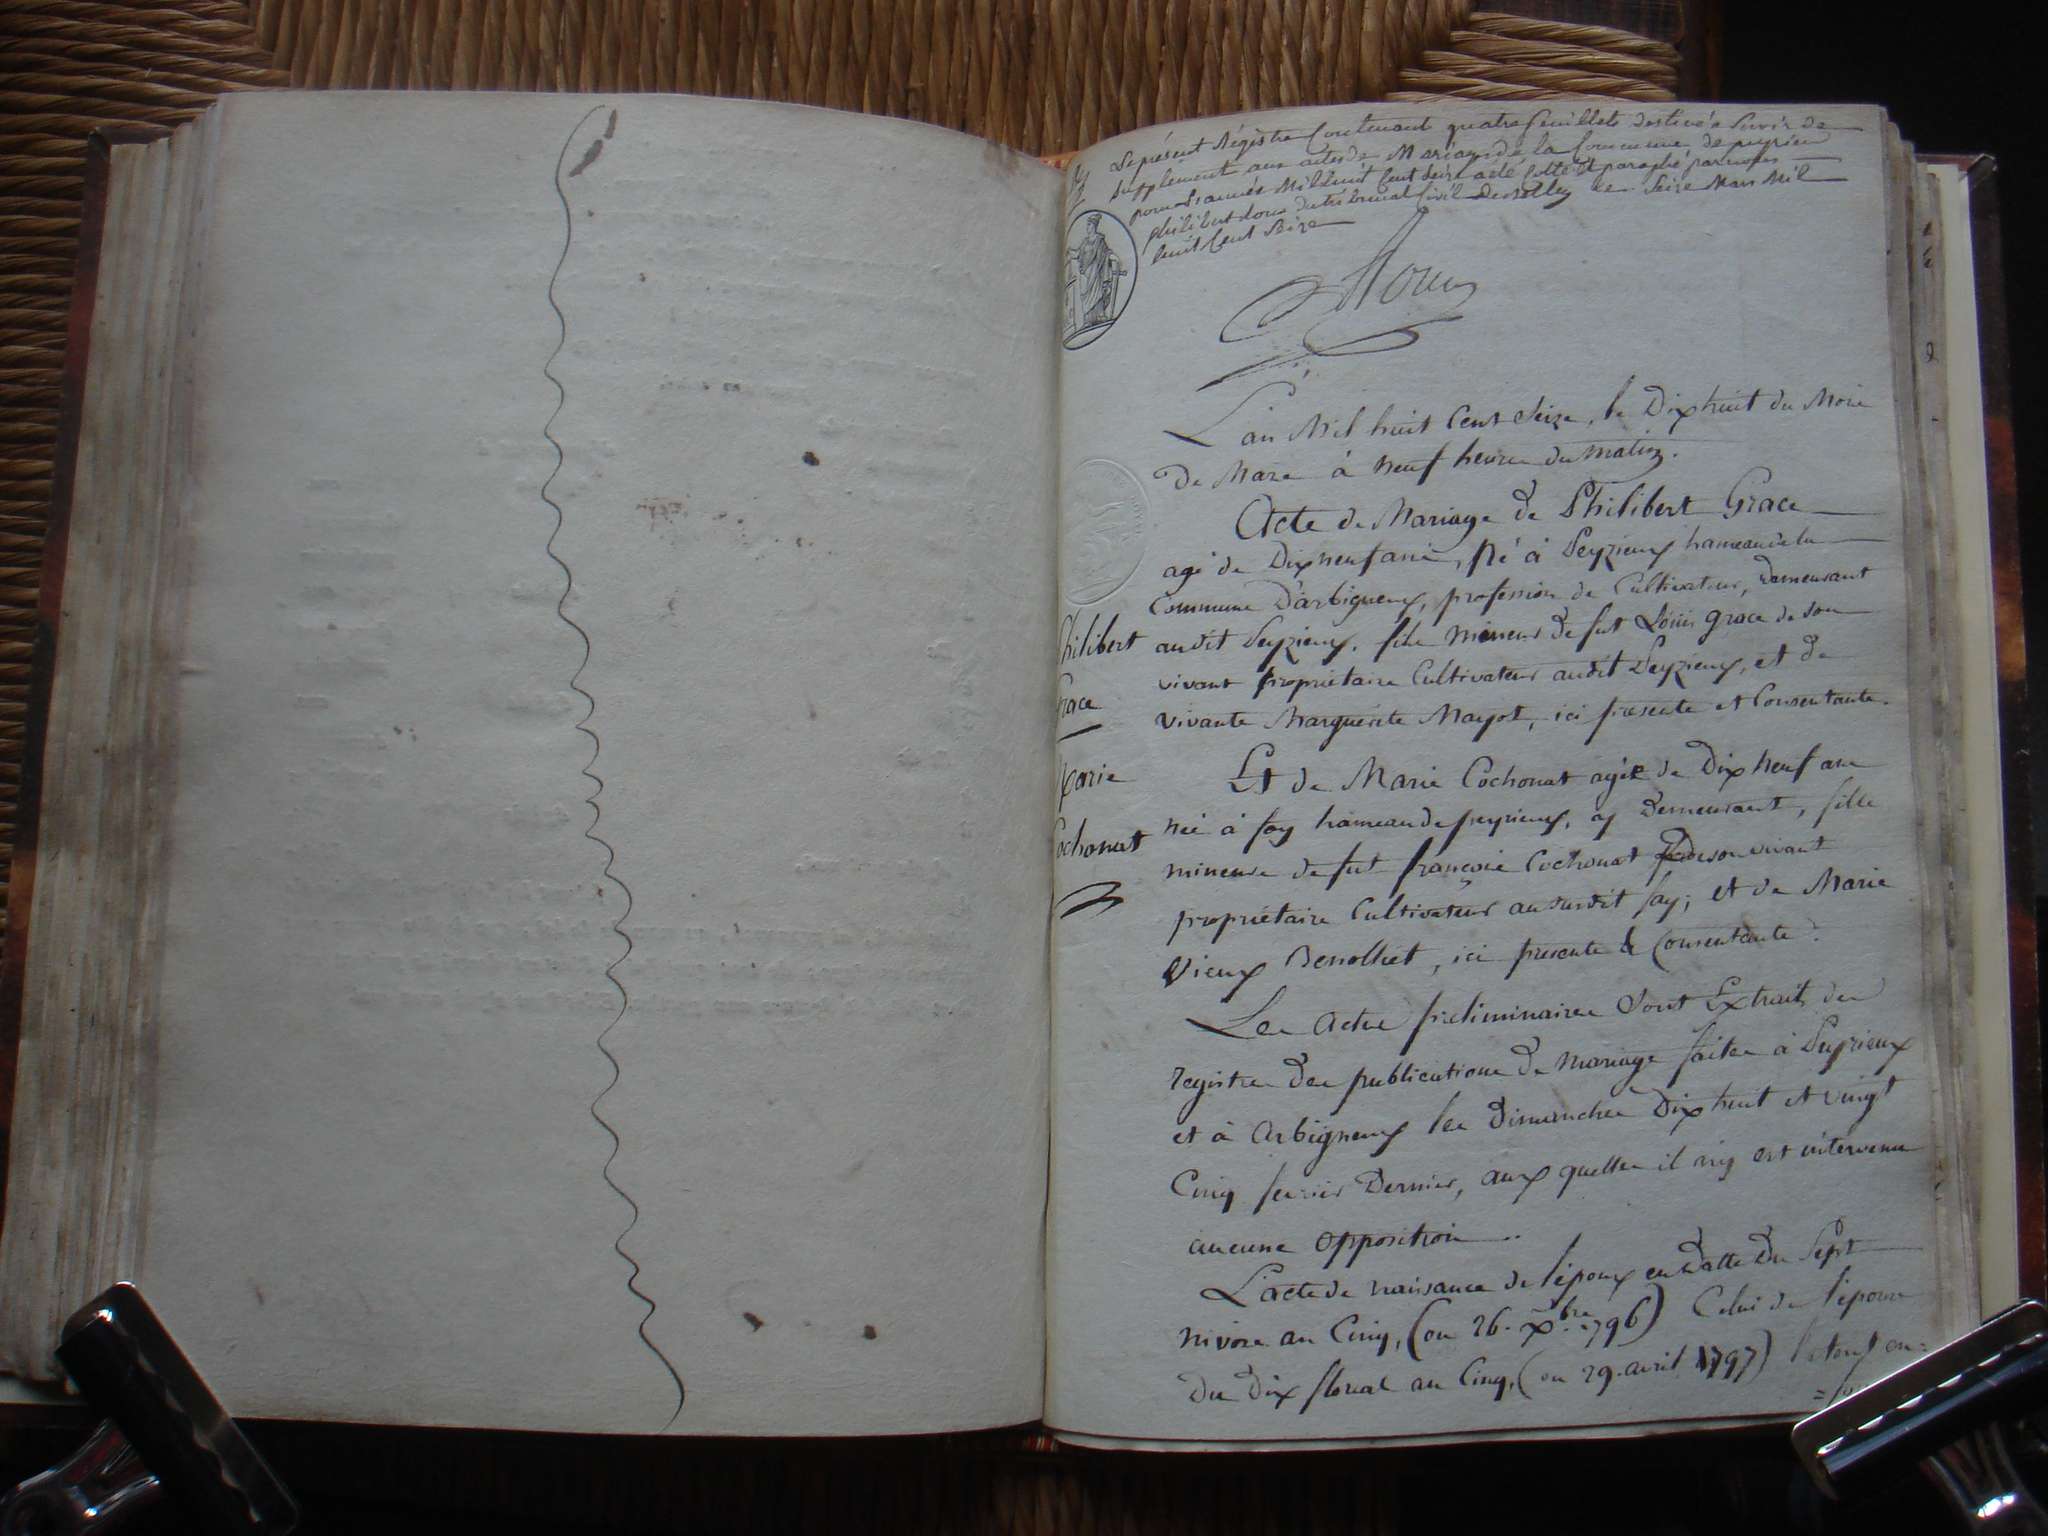 Le présent Régistre Contenant quatre feuillets destiné à Servir de
Supplément aux actes de Mariages de la Commune de peyrieu
pour L'année Mil huit Cent Seize a été Cotté et paraphé par nous
philibert du tribunal Civil de Belley le Seize Mars Mil
huit Cent Seize
L'an Mil huit Cent Seize, le Dix huit du Mois
De Mars à Neuf heures du matin.
Acte de Mariage de Philibert Grace
agé de Dix neuf ans, Né à Peyzieux hameau de la
Commune D'arbignieux, profession de Cultivateur, Demeurant
audit Peyzieux, fils Mineur de fut Loüis grace de son
vivant propriétaire Cultivateur audit Peyzieux, et de
vivante Marguerite Mayot, ici présente et Consentante.
Philibert
Grace
Et de Marie Cochonat agée de Dix neuf ans
Née à fay hameau de peyrieux, y Demeurant, fille
mineure de fut françois Cochonat de son vivant
propriétaire Cultivateur au susdit fay; et de Marie
Vieux Benolliet, ici présente & Consentante.
Marie
Cochonat
Les actes préliminaires Sont Extraits des
registres des publications de mariage faites à Peyrieux
et à Arbignieux les Dimanches Dix huit et vingt
Cinq fevrier Dernier, aux quelles il n'y est intervenu
aucune Opposition ..
L'acte de naissance de l'époux en Datte du Sept
nivose an Cinq, (ou 26. Xbre. 1796) Celui de l'épouse
Du Dix floreal an Cinq, (ou 29. avril 1797) le tout en=